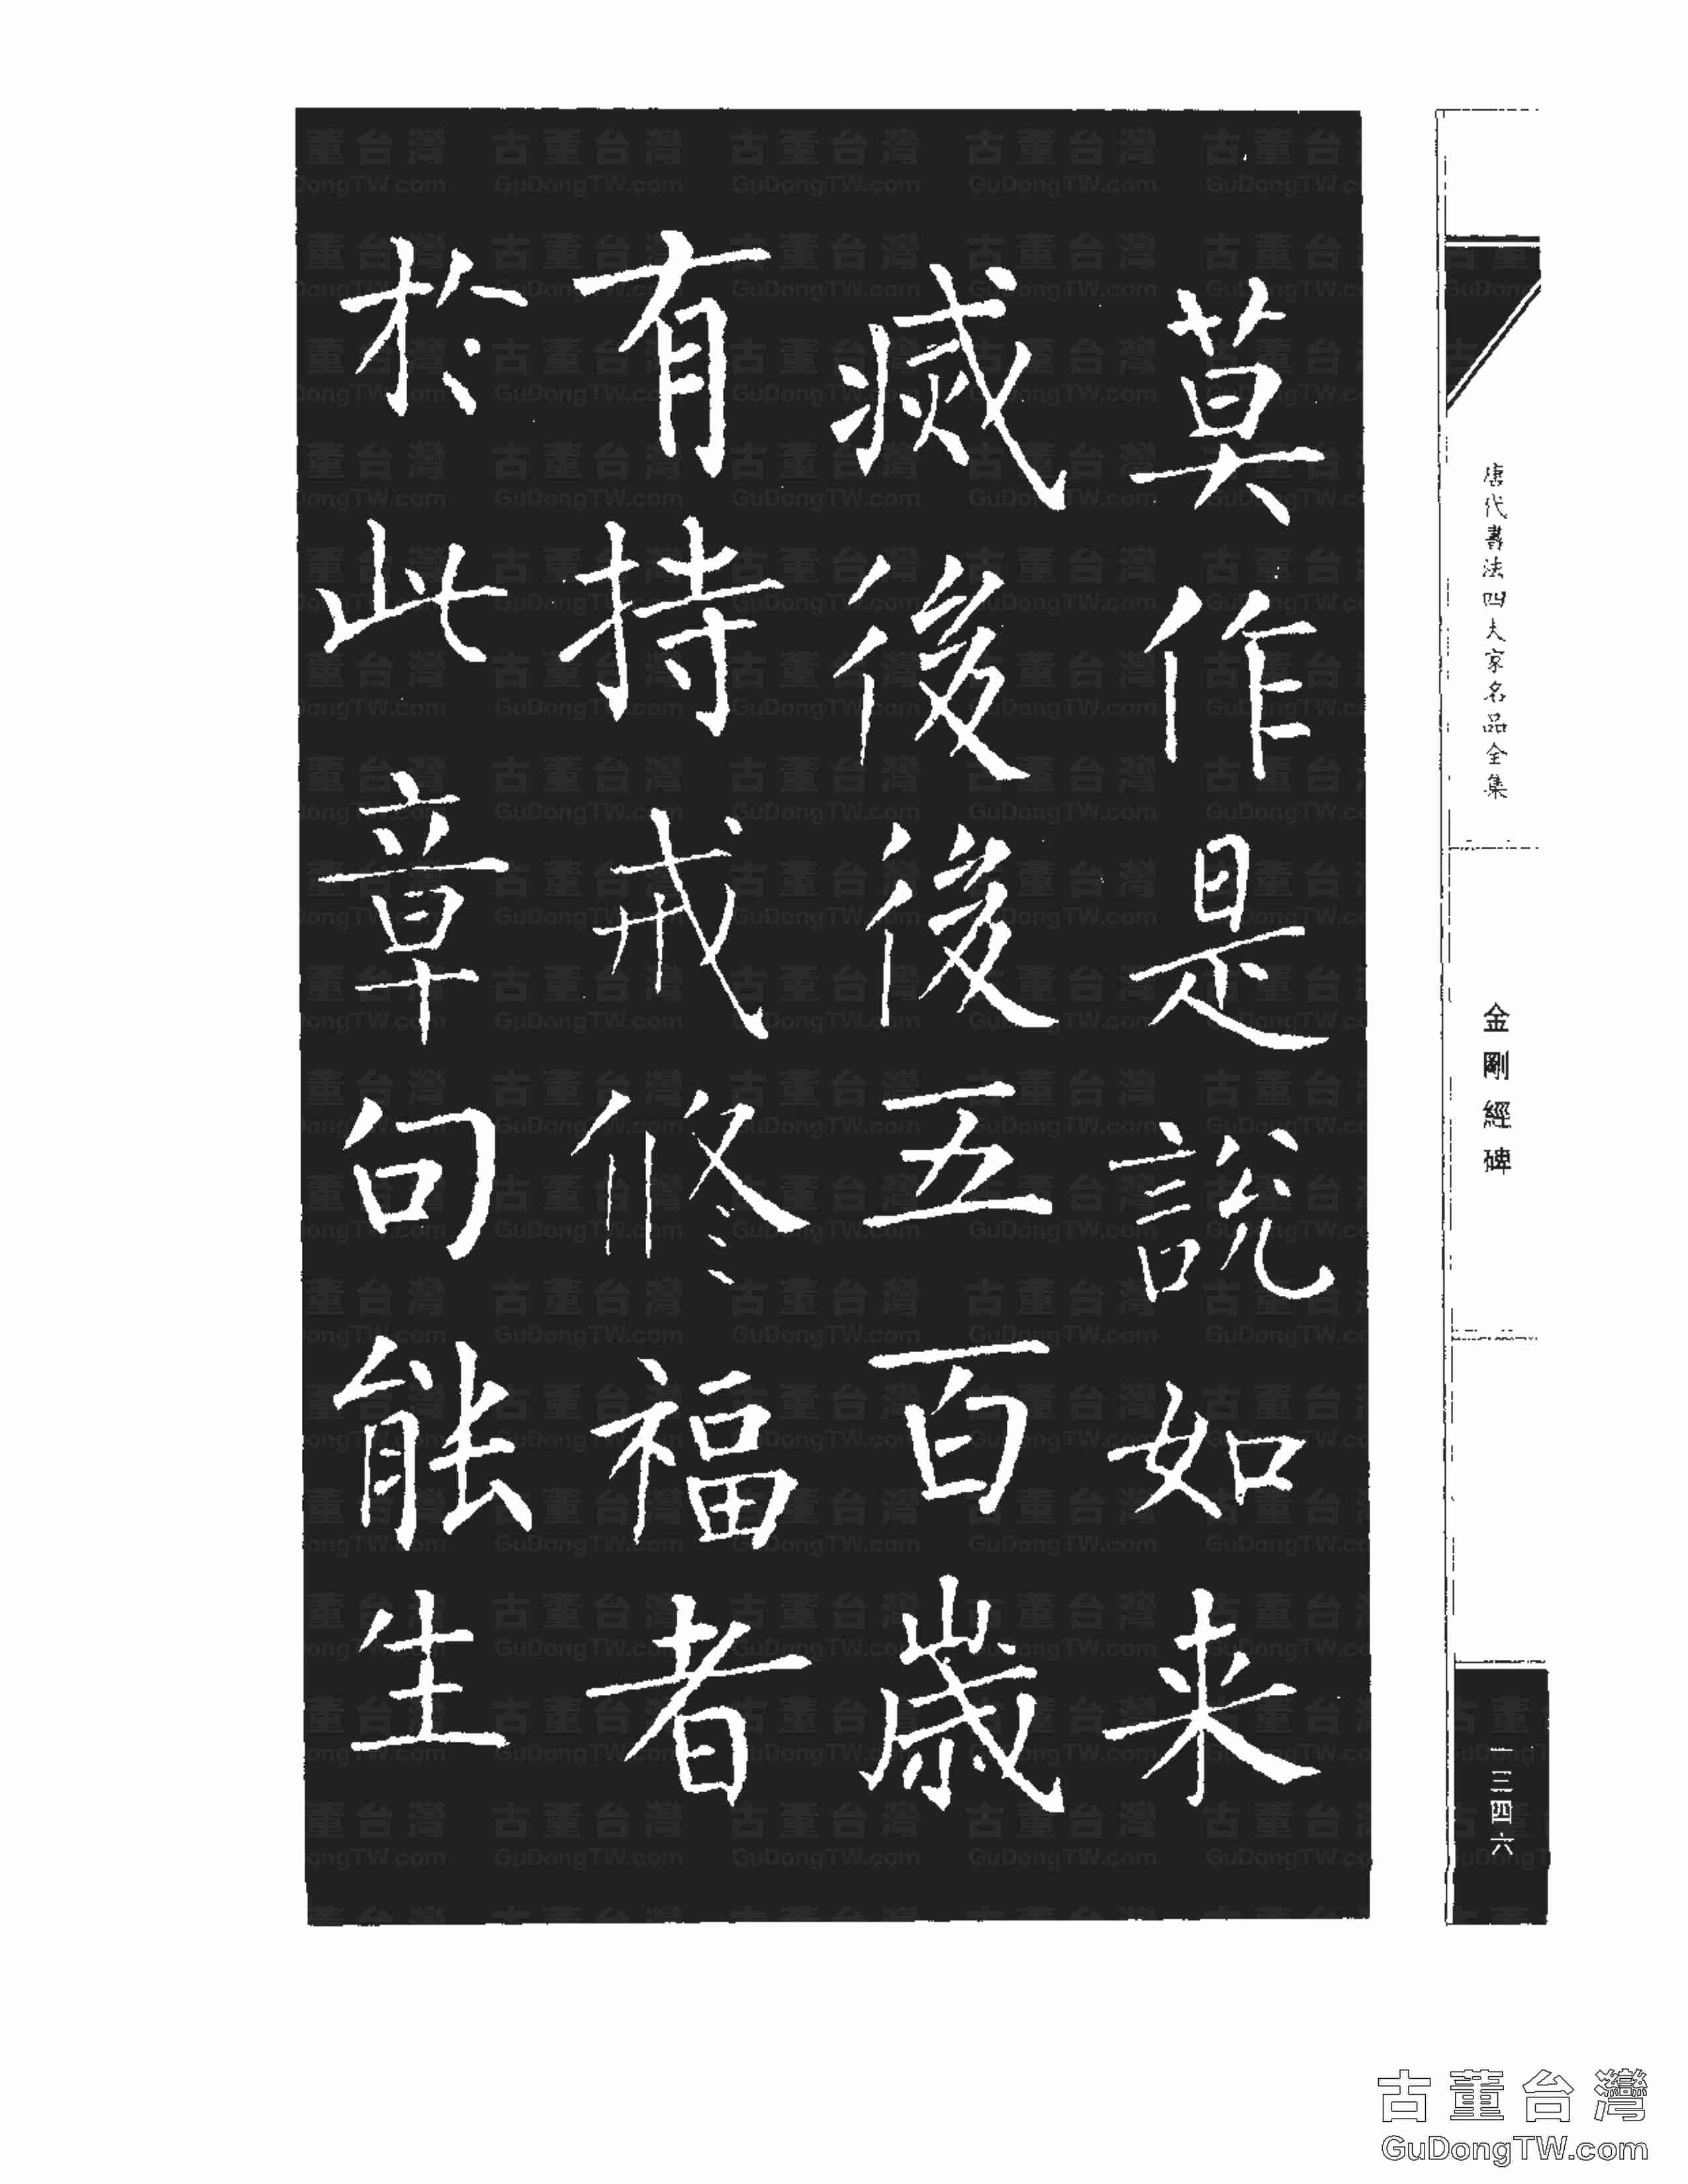 莫作是説如来
滅後後五百歲
有持戒修福者
於此章句能生
唐代書法四大家名品全集
金剛經碑
一三四六
古董台灣
GuDongTW.com